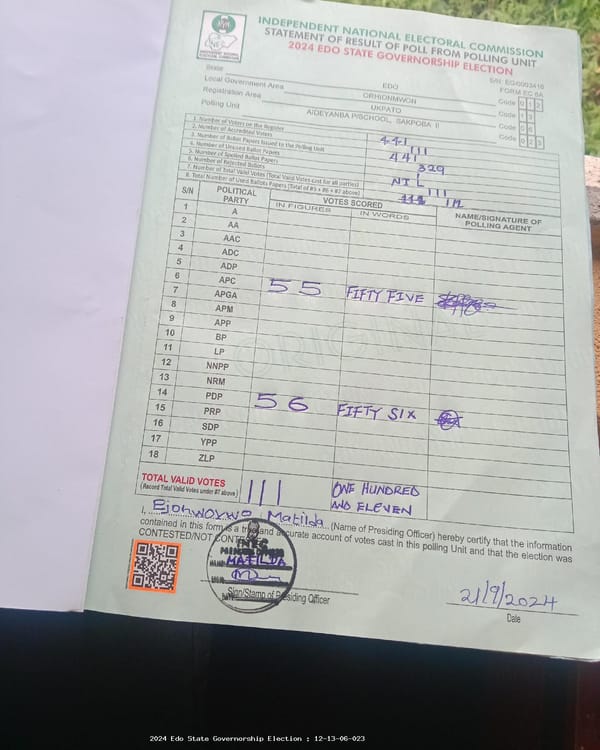 INDEPENDENT NATIONAL ELECTORAL COMMISSION
STATEMENT OF RESULT OF POLL FROM POLLING UNIT
2024 EDO STATE GOVERNORSHIP ELECTION
S/N: EG/0003416
FORM EC 8A
State EDO Code 1 2
Local Government Area ORHIONMWON Code 1 3
Registration Area UKPATO Code 0 6
Polling Unit AIDEYANBA P/SCHOOL, SAKPOBA II Code 0 2 3
1. Number of Voters on the Register 441
2. Number of Accredited Voters 111
3. Number of Ballot Papers Issued to the Polling Unit 441
4. Number of Unused Ballot Papers 329
5. Number of Spoiled Ballot Papers 1
6. Number of Rejected Ballots NIL
7. Number of Total Valid Votes (Total Valid Votes cast for all parties) 111
8. Total Number of Used Ballots Papers (Total of #5 + #6 + #7 above) 112
S/N POLITICAL PARTY VOTES SCORED NAME/SIGNATURE OF POLLING AGENT
IN FIGURES IN WORDS
1 A
2 AA
3 AAC
4 ADC
5 ADP
6 APC 55 FIFTY FIVE
7 APGA
8 APM
9 APP
10 BP
11 LP
12 NNPP
13 NRM
14 PDP 56 FIFTY SIX
15 PRP
16 SDP
17 YPP
18 ZLP
TOTAL VALID VOTES 111 ONE HUNDRED
(Record Total Valid Votes under #7 above) AND ELEVEN
I, Matilda (Name of Presiding Officer) hereby certify that the information
contained in this form is a true and accurate account of votes cast in this polling Unit and that the election was
CONTESTED/NOT CONTESTED
INEC
MATILDA
Sign/Stamp of Presiding Officer
21/9/2024
Date
2024 Edo State Governorship Election : 12-13-06-023